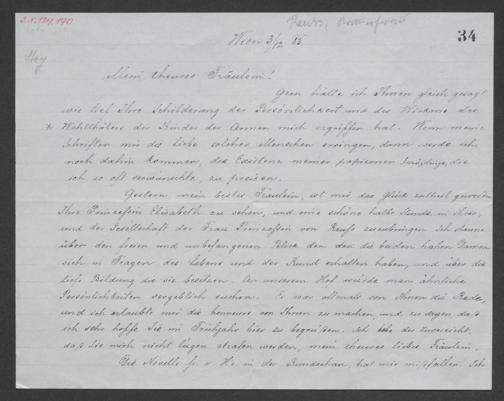 I.N. 124.140
34
Wien 3/12 85
Mein theures Fräulein!
Gern hätte ich Ihnen gleich gesagt
wie tief Ihre Schilderung der Persönlichkeit und des Wirkens des
Wohlthäters der Kinder der Armen mich ergriffen hat. Wenn meine
Schriften mir die Liebe solcher Menschen erringen, dann werde ich
noch dahin kommen, die Existenz meiner papierenen die
ich so oft verwünschte, zu preisen.
Gestern, mein bestes Fräulein, ist mir das Glück zutheil geworden
Ihre Prinzessin Elisabeth zu sehen, und eine schöne halbe Stunde in ihrer,
und der Gesellschaft der Frau Prinzessin von Reuß zuzubringen. Ich staune
über den freien und unbefangenen Blick den die beiden hohen Damen
sich in Fragen des Lebens und der Kunst erhalten haben, und über die
tiefe Bildung die sie besitzen. An unserem Hof würde man ähnliche
Persönlichkeiten vergeblich suchen. Es war oftmals von Ihnen die Rede,
und ich erlaubte mir die honneurs von Ihnen zu machen, und zu sagen, daß
ich sehr hoffe Sie im Frühjahr hier zu begrüßen. Ich lebe der Zuversicht,
daß Sie mich nicht Lügen strafen werden, mein theures liebes Fräulein.
Die Novelle v. H. in der Rundschau, hat mir mißfallen. Ich